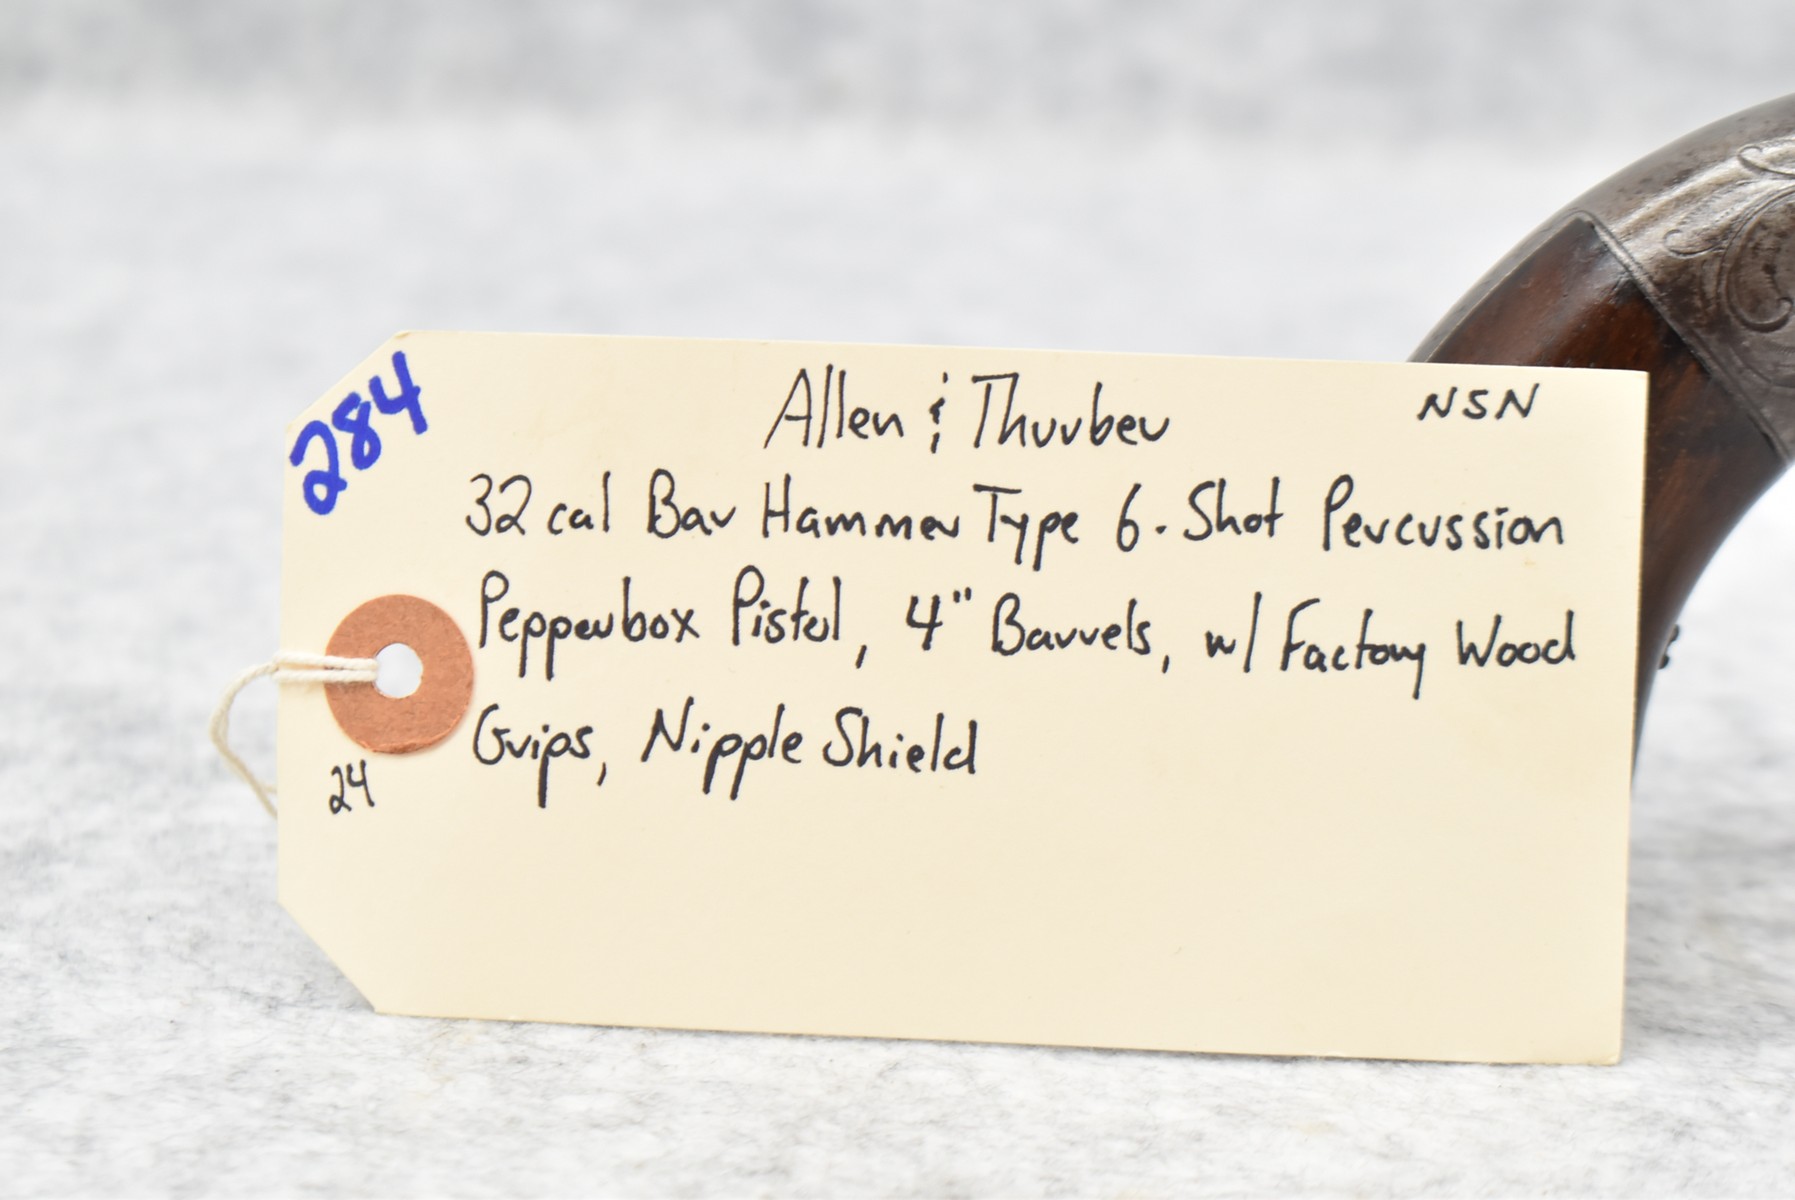 284
Allen & Thurber NSN
32 cal Bar Hammer Type 6-Shot Percussion
Pepperbox Pistol, 4" Barrels, w/ Factory Wood
Grips, Nipple Shield
24